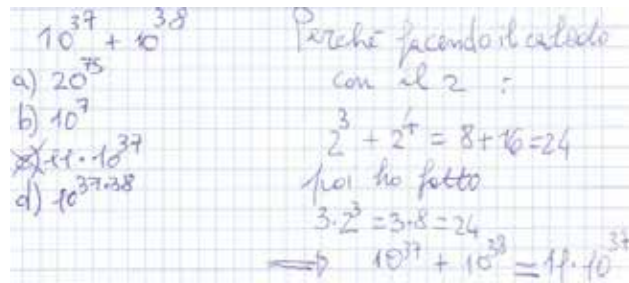 10³⁷ + 10³⁸
a) 20⁷⁵
b) 10⁷
c) 11 · 10³⁷
d) 10³⁷·³⁸
Perché facendo il calcolo
con il 2 :
2³ + 2⁴ = 8 + 16 = 24
poi ho fatto
3 · 2³ = 3 · 8 = 24
⟹ 10³⁷ + 10³⁸ = 11 · 10³⁷